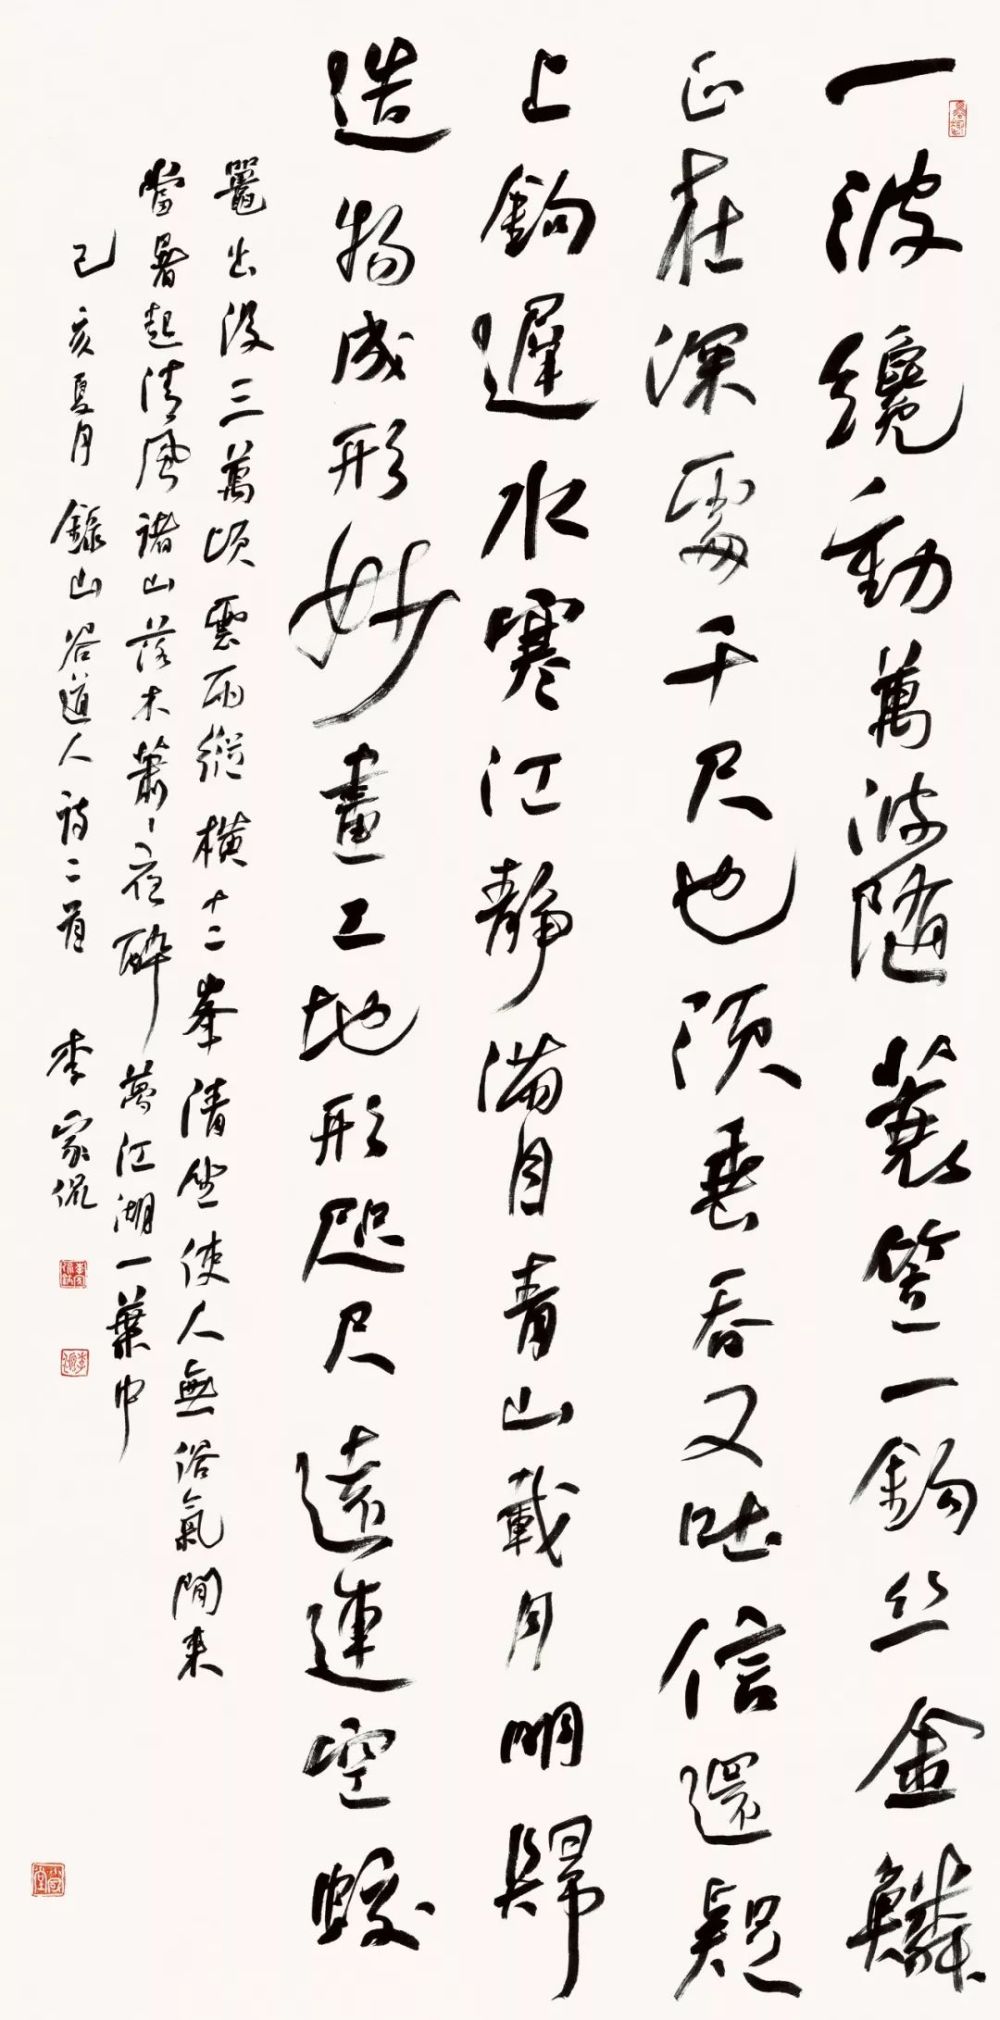 一波纔動萬波隨蓑笠一鉤絲金鱗
正在深處千尺也須垂吞又吐信還疑
上鉤遲水寒江靜滿目青山載月明歸
造物成形妙畫工地形咫尺遠連空蛟
鼉出没三萬頃雲雨縱橫十二峯清坐使人無俗氣閒來
當暑起清風諸山落木蕭〻夜醉萬江湖一葉中
己亥夏月錄山谷道人詩二首 李家侃